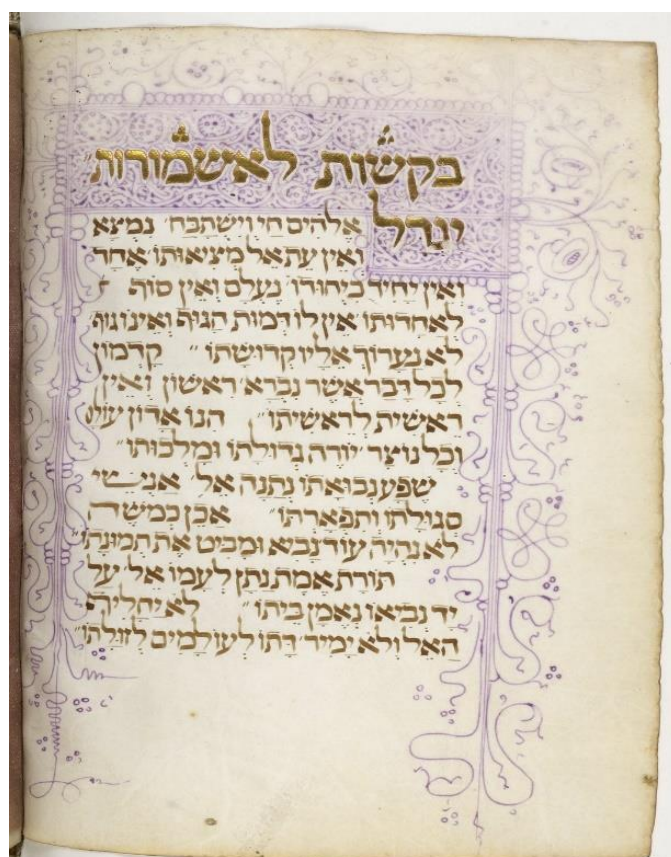 בקשות לאשמורות
יגדל
אלהים חי וישתבח נמצא
ואין עת אל מציאותו אחד
ואין יחיד כיחודו נעלם ואין סוף
לאחדותו אין לו דמות הגוף ואינו גוף
לא נערוך אליו קדושתו קדמון
לכל דבר אשר נברא ראשון ואין
ראשית לראשיתו הנו אדון עולם
וכל נוצר יורה גדולתו ומלכותו
שפע נבואתו נתנה אל אנשי
סגולתו ותפארתו אכן כמשה
לא נהיה עוד נביא ומביט את תמונתו
תורת אמת נתן לעמו אל על
יד נביאו נאמן ביתו לא יחליף
האל ולא ימיר דתו לעולמים לזולתו